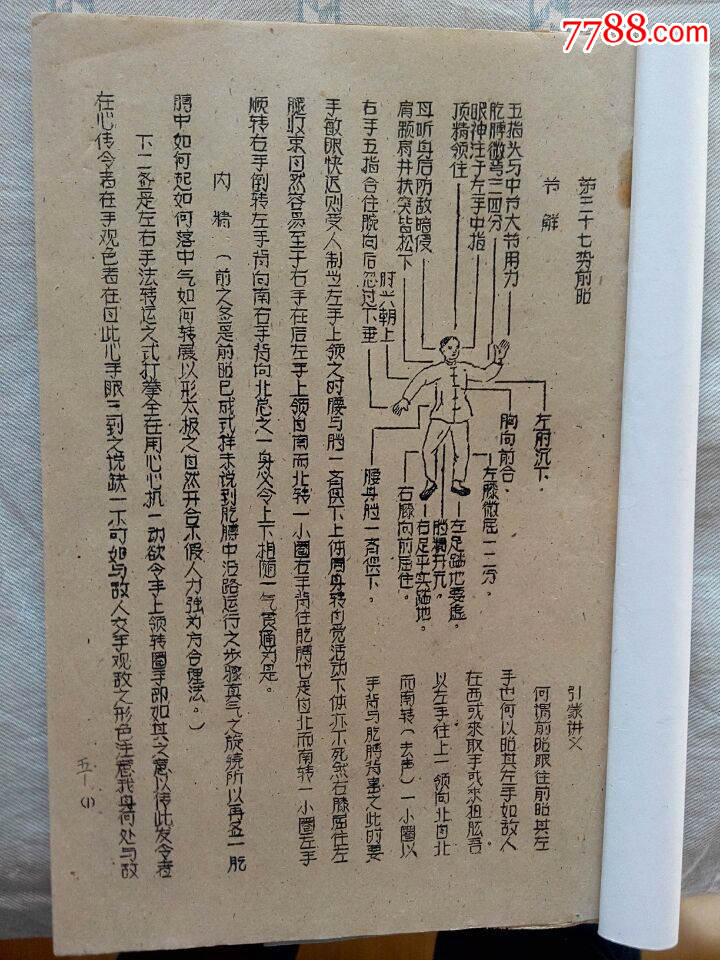 7788.com
第三十七势前昭
节解
五指头与中节大节用力
肐膊微弯三四分
眼神注于左手中指
顶精领住
耳听身后防敌暗侵
肩颙肩井扶突皆松下
肘兴朝上
右手五指合住腕向后忽过下垂
左肘沉下。
胸向前合。
左膝微屈一二分。
左足踏地要虚。
裆精开元。
右足平实踏地。
右膝向前屈住。
腰与裆一齐俱下。
引蒙讲义
何谓前昭眼往前昭其左
手也何以昭其左手如敌人
在西或来取手或来
以左手往上一领向北自北
而南转(去声)一小圈以
手背与肐膊背
之此时要
手敏眼快迟则受人制当左手上领之时腰与裆一齐俱下上体周身转自觉活动下体亦不死然右膝屈住左
腿收束自然容易至于右手在后左手上领自南而北转一小圈右手背往肐膊也是自北而南转一小圈左手
顺转右手倒转左手背向南右手背向北总之一身必令上下相随一气贯通为是。
内精(前之各是前昭已成式样未说到肐膊中沿路运行之步骤真气之旋绕所以再各一肐
膊中如何起如何落中气如何转展以形太极之自然开合不假人力强为方合理法。)
下二各是左右手法转运之式打拳全在用心心机一动欲令手上领转圈手即如其之意以传此发令者
在心传令者在手观色者在目此心手眼三到之说缺一不可如与敌人交手观敌之形色注意我身何处与敌
五十(1)